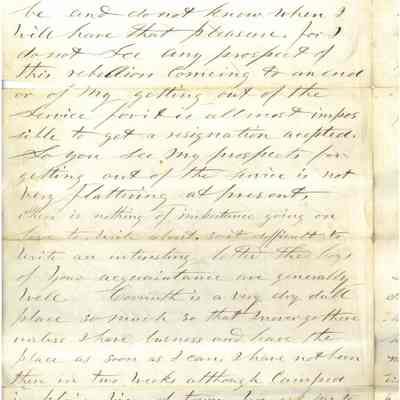 be and do not know when I
will have that pleasure. for I
do not See any prospect of
this rebellion comeing to an end
or of my getting out of the
Service for it is all most impos
sible to get a resignation acepted.
So you See my prospects for
getting out of the service is not
very flattering at present.
there is nothing of importance going on
here to write about. so it difficult to
write an interesting letter the boys
of your acquaintance are generally
well Corinth is a very dry dull
place so much so that I never go there
unless I have buisness and leave the
place as soon as I can. I have not been
there in two weeks although Camped
in plain view of town